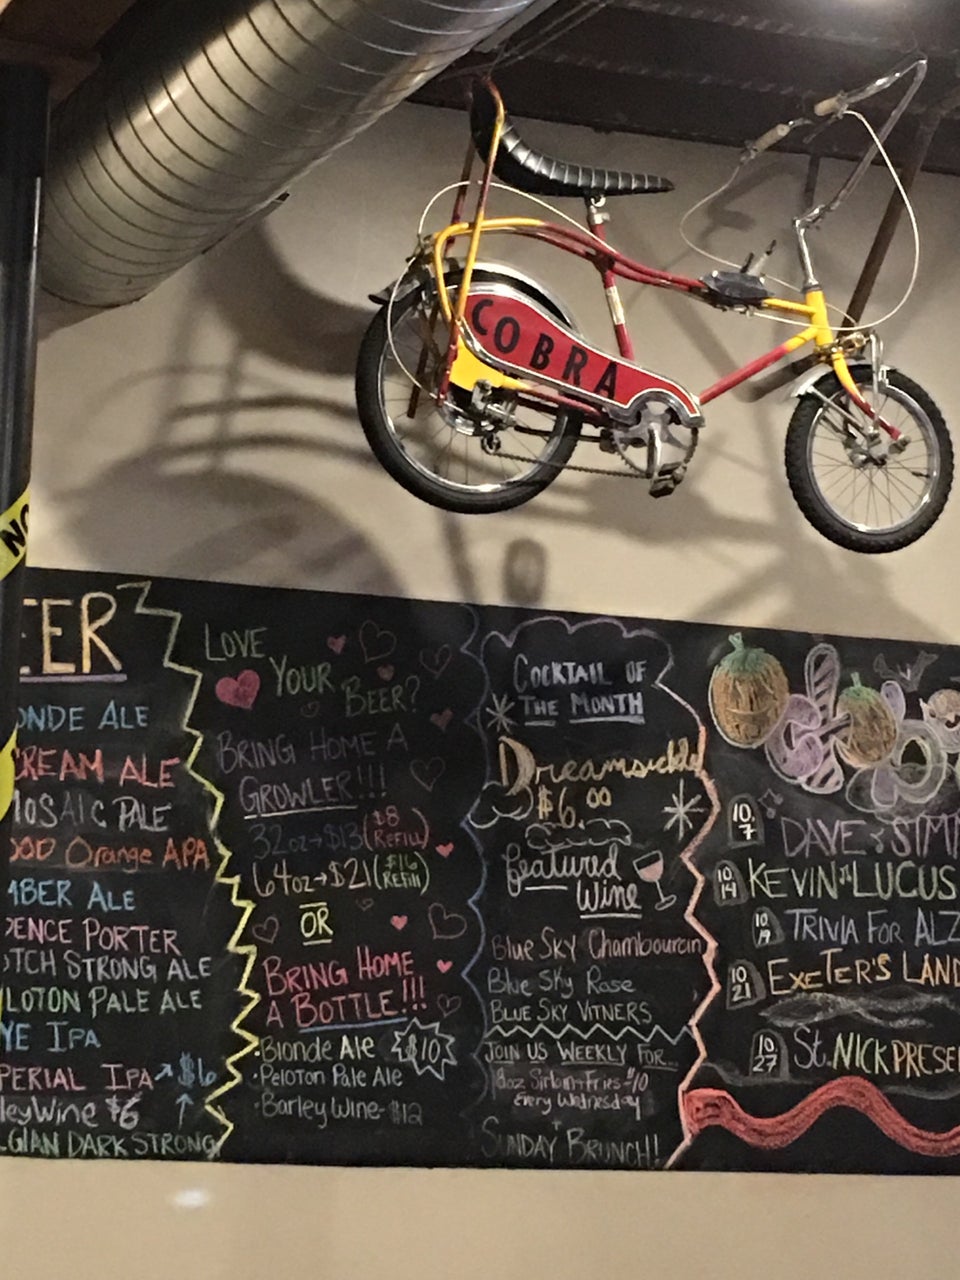 COBRA
NO
EER
ONDE ALE
CREAM ALE
MOSAIC PALE
OOD Orange APA
MBER ALE
DENCE PORTER
OTCH STRONG ALE
LOTON PALE ALE
YE IPA
PERIAL IPA → $6
leyWine $6
LGIAN DARK STRONG
LOVE
YOUR
BEER?
BRING HOME A
GROWLER!!!
32oz → $13 ($8 REFILL)
64oz → $21 ($16 REFILL)
OR
BRING HOME
A BOTTLE!!!
·Blonde Ale $10
·Peloton Pale Ale
·Barley Wine - $12
COCKTAIL OF
THE MONTH
Dreamsickle
$6.00
featured
Wine
Blue Sky Chambourcin
Blue Sky Rose
BLUE SKY VITNERS
JOIN US WEEKLY FOR...
8oz Sirloin + Fries - $10
Every Wednesday
SUNDAY BRUNCH!!
10.7 DAVE & SIMM
10/14 KEVIN N LUCUS
10/19 TRIVIA FOR ALZ
10/21 EXETER'S LAND
10/27 St. NICK PRESE